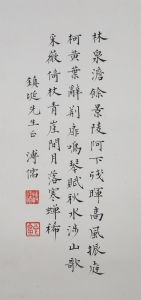 林泉澹餘景陵阿下殘暉高風振庭
柯黃葉辭荊扉鳴琴賦秋水涉山歌
采薇倚杖青崖間月落寒蟬稀
鎮㻏先生正 溥儒